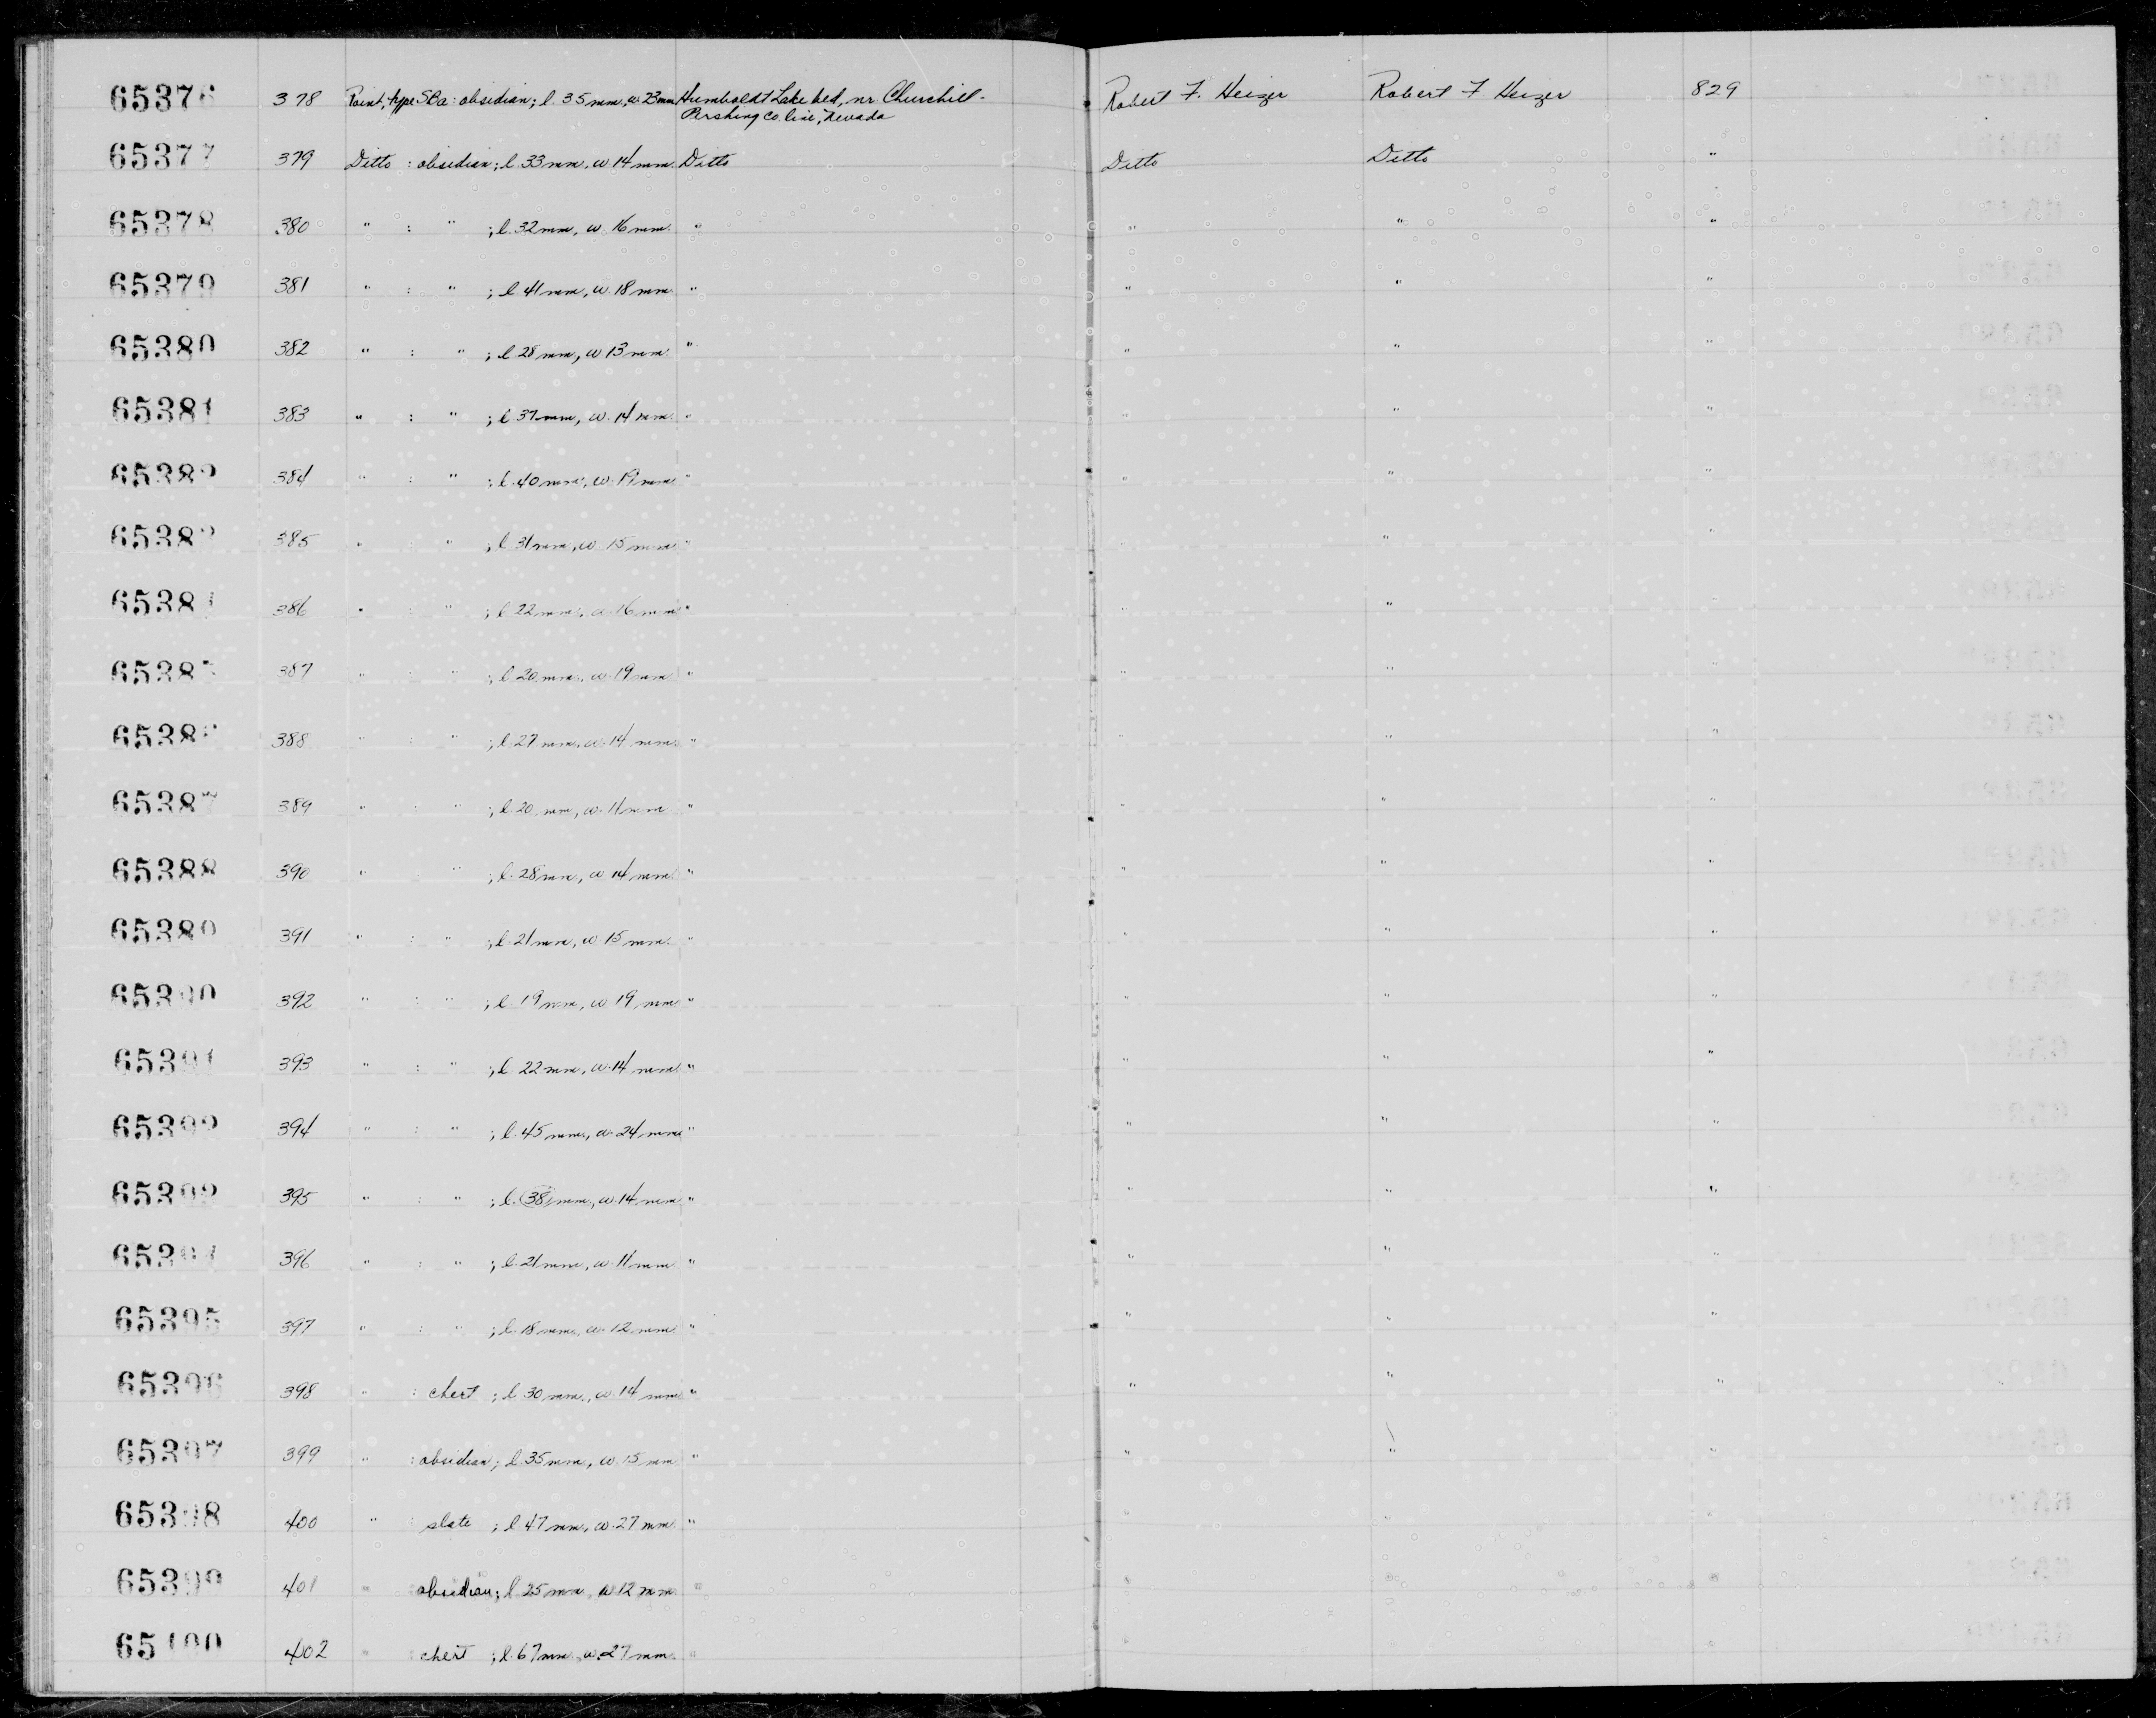 65376 378 Point, type SBa: obsidian; l. 35 mm, w. 23 mm Humboldt Lake bed, nr Churchill- Robert F. Heizer Robert F Heizer 829
Pershing Co. line, Nevada
65377 379 Ditto : obsidian; l. 33 mm, w 14 mm. Ditto Ditto Ditto "
65378 380 " : " ; l. 32 mm, w. 16 mm. " " " "
65379 381 " : " ; l. 41 mm, w. 18 mm. " " " "
65380 382 " : " ; l. 28 mm, w 13 mm. " " " "
65381 383 " : " ; l. 37 mm, w. 14 mm. " " " "
65382 384 " : " ; l. 40 mm, w. 19 mm. " " " "
65383 385 " : " ; l. 31 mm, w. 15 mm " " " "
65384 386 " : " ; l. 22 mm, w. 16 mm. " " " "
65385 387 " : " ; l. 20 mm, w. 19 mm. " " " "
65386 388 " : " ; l. 27 mm, w. 14 mm. " " " "
65387 389 " : " ; l. 20 mm, w. 11 mm " " " "
65388 390 " : " ; l. 28 mm, w 14 mm. " " " "
65389 391 " : " ; l. 21 mm, w 15 mm. " " " "
65390 392 " : " ; l. 19 mm, w 19 mm. " " " "
65391 393 " : " ; l. 22 mm, w. 14 mm. " " " "
65392 394 " : " ; l. 45 mm, w. 24 mm " " " "
65393 395 " : " ; l. (38) mm, w. 14 mm " " " "
65394 396 " : " ; l. 21 mm, w. 11 mm " " " "
65395 397 " : " ; l. 18 mm, w. 12 mm. " " " "
65396 398 " : chert ; l. 30 mm, w. 14 mm " " " "
65397 399 " : obsidian; l. 35 mm, w. 15 mm " " " "
65398 400 " : slate ; l. 47 mm, w. 27 mm. " " " "
65399 401 " obsidian; l. 25 mm, w 12 mm " " " "
65400 402 " : chert ; l. 67 mm, w. 27 mm. " " " "